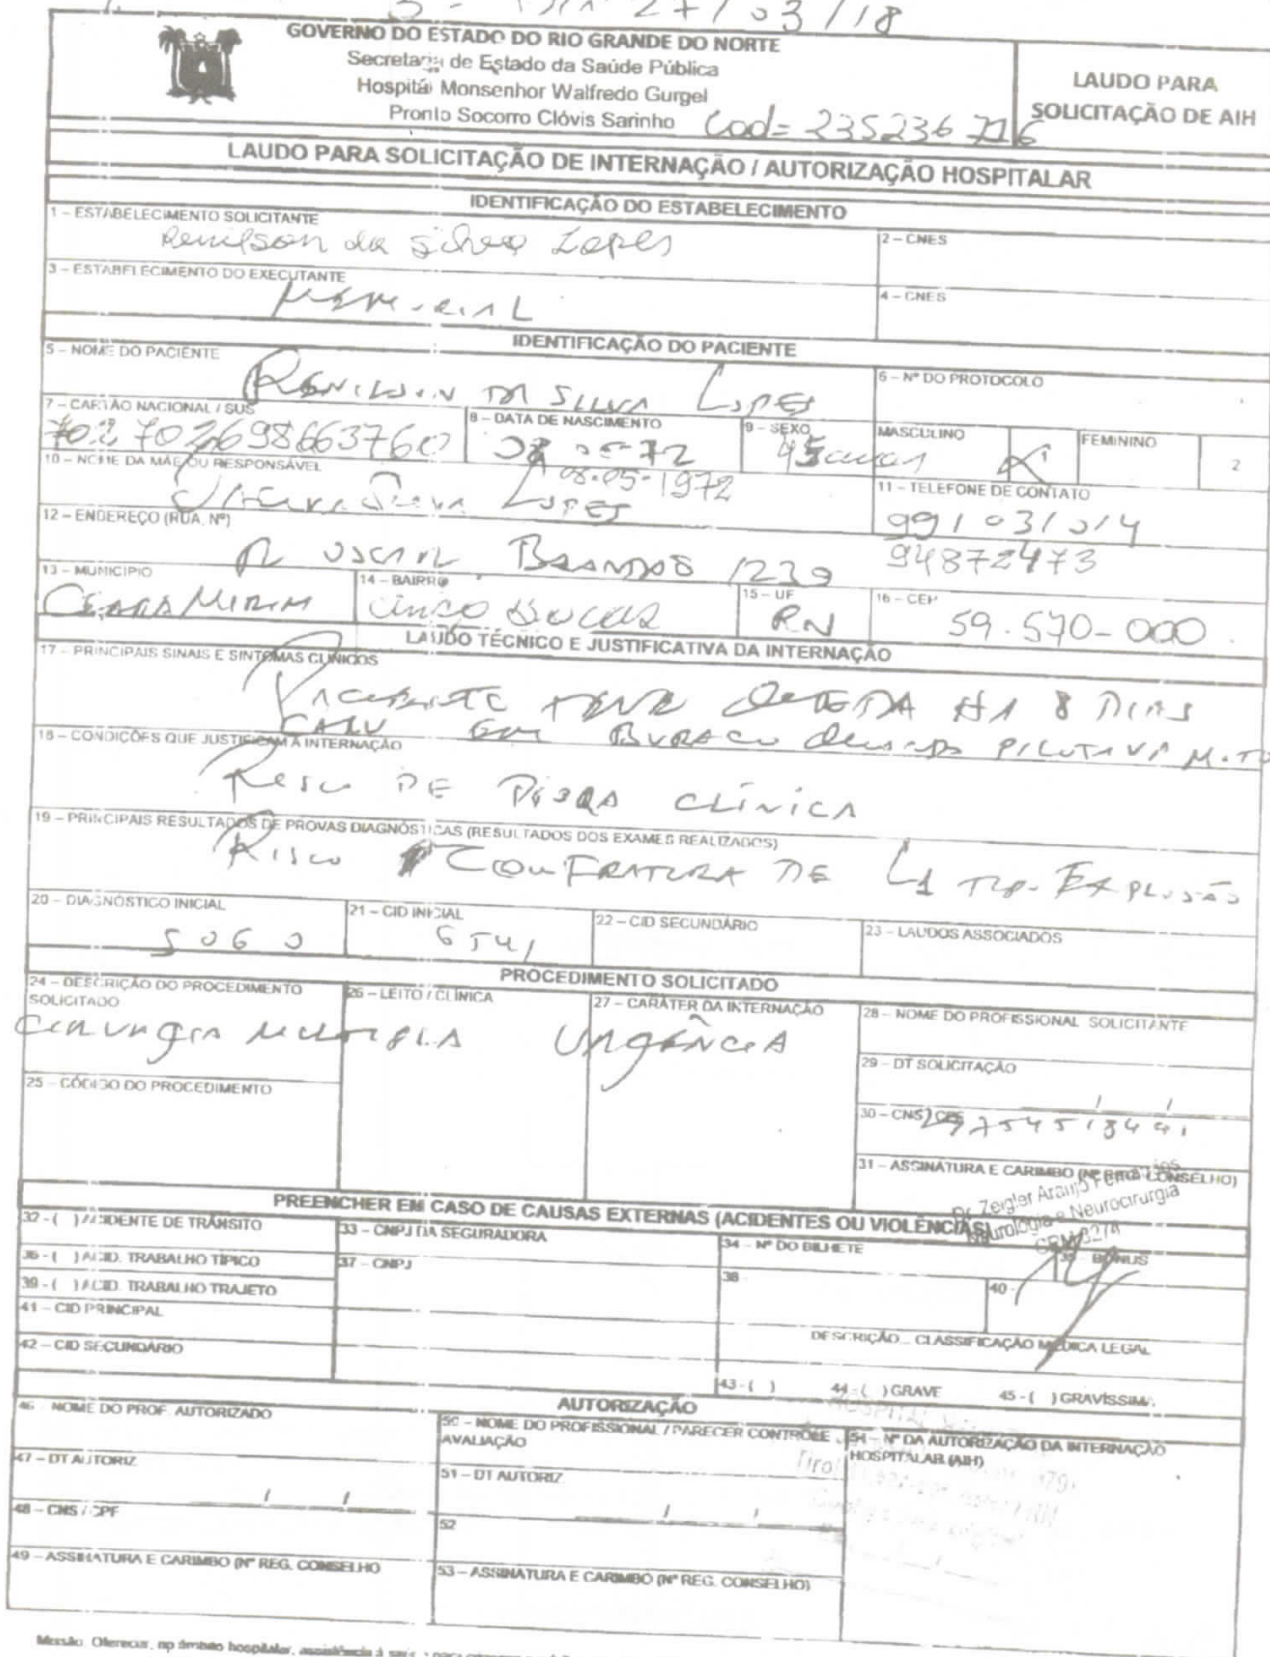 27/03/18
GOVERNO DO ESTADO DO RIO GRANDE DO NORTE
Secretaria de Estado da Saúde Pública
Hospital Monsenhor Walfredo Gurgel
Pronto Socorro Clóvis Sarinho
Cod= 235236716
LAUDO PARA
SOLICITAÇÃO DE AIH
LAUDO PARA SOLICITAÇÃO DE INTERNAÇÃO / AUTORIZAÇÃO HOSPITALAR
IDENTIFICAÇÃO DO ESTABELECIMENTO
1 – ESTABELECIMENTO SOLICITANTE
Renilson da Silva Lopes
2 – CNES
3 – ESTABELECIMENTO DO EXECUTANTE
4 – CNES
IDENTIFICAÇÃO DO PACIENTE
5 – NOME DO PACIENTE
Renilson da Silva Lopes
6 – Nº DO PROTOCOLO
7 – CARTÃO NACIONAL / SUS
702702698663760
8 – DATA DE NASCIMENTO
08 05-72
08-05-1972
9 – SEXO
45 anos
MASCULINO
FEMININO
2
10 – NOME DA MÃE OU RESPONSÁVEL
Silva Lopes
11 – TELEFONE DE CONTATO
991031014
94872473
12 – ENDEREÇO (RUA, Nº)
R Oscar Brandão 1239
13 – MUNICIPIO
Ceara Mirim
14 – BAIRRO
Cinco Bocas
15 – UF
RN
16 – CEP
59.570-000
LAUDO TÉCNICO E JUSTIFICATIVA DA INTERNAÇÃO
17 – PRINCIPAIS SINAIS E SINTOMAS CLINICOS
Paciente teve queda há 8 dias
Caiu em buraco quando pilotava moto
18 – CONDIÇÕES QUE JUSTIFICAM A INTERNAÇÃO
Risco de piora clínica
19 – PRINCIPAIS RESULTADOS DE PROVAS DIAGNÓSTICAS (RESULTADOS DOS EXAMES REALIZADOS)
Risco com fratura de L1 tip. Explosão
20 – DIAGNÓSTICO INICIAL
5060
21 – CID INICIAL
6541
22 – CID SECUNDÁRIO
23 – LAUDOS ASSOCIADOS
PROCEDIMENTO SOLICITADO
24 – DESCRIÇÃO DO PROCEDIMENTO
SOLICITADO
Cirurgia Multipla
26 – LEITO / CLÍNICA
27 – CARÁTER DA INTERNAÇÃO
Urgência
28 – NOME DO PROFISSIONAL SOLICITANTE
29 – DT SOLICITAÇÃO
/ /
25 – CÓDIGO DO PROCEDIMENTO
30 – CNS / CPF
31 – ASSINATURA E CARIMBO (Nº REG. CONSELHO)
Dr. Zeigler Araujo
Neurologia e Neurocirurgia
PREENCHER EM CASO DE CAUSAS EXTERNAS (ACIDENTES OU VIOLÊNCIAS)
32 – ( ) ACIDENTE DE TRÂNSITO
33 – CNPJ DA SEGURADORA
34 – Nº DO BILHETE
35 – BÔNUS
36 – ( ) ACID. TRABALHO TÍPICO
37 – CNPJ
38
39 – ( ) ACID. TRABALHO TRAJETO
40
41 – CID PRINCIPAL
DESCRIÇÃO – CLASSIFICAÇÃO MÉDICA LEGAL
42 – CID SECUNDÁRIO
43 - ( ) 44 - ( ) GRAVE 45 - ( ) GRAVÍSSIMA
AUTORIZAÇÃO
46 – NOME DO PROF. AUTORIZADO
50 – NOME DO PROFISSIONAL / PARECER CONTROLE
AVALIAÇÃO
54 – Nº DA AUTORIZAÇÃO DA INTERNAÇÃO
HOSPITALAR (AIH)
47 – DT AUTORIZ.
/ /
51 – DT AUTORIZ.
/ /
48 – CNS / CPF
52
49 – ASSINATURA E CARIMBO (Nº REG. CONSELHO
53 – ASSINATURA E CARIMBO (Nº REG. CONSELHO)
Missão: Oferecer, no âmbito hospitalar, assistência à